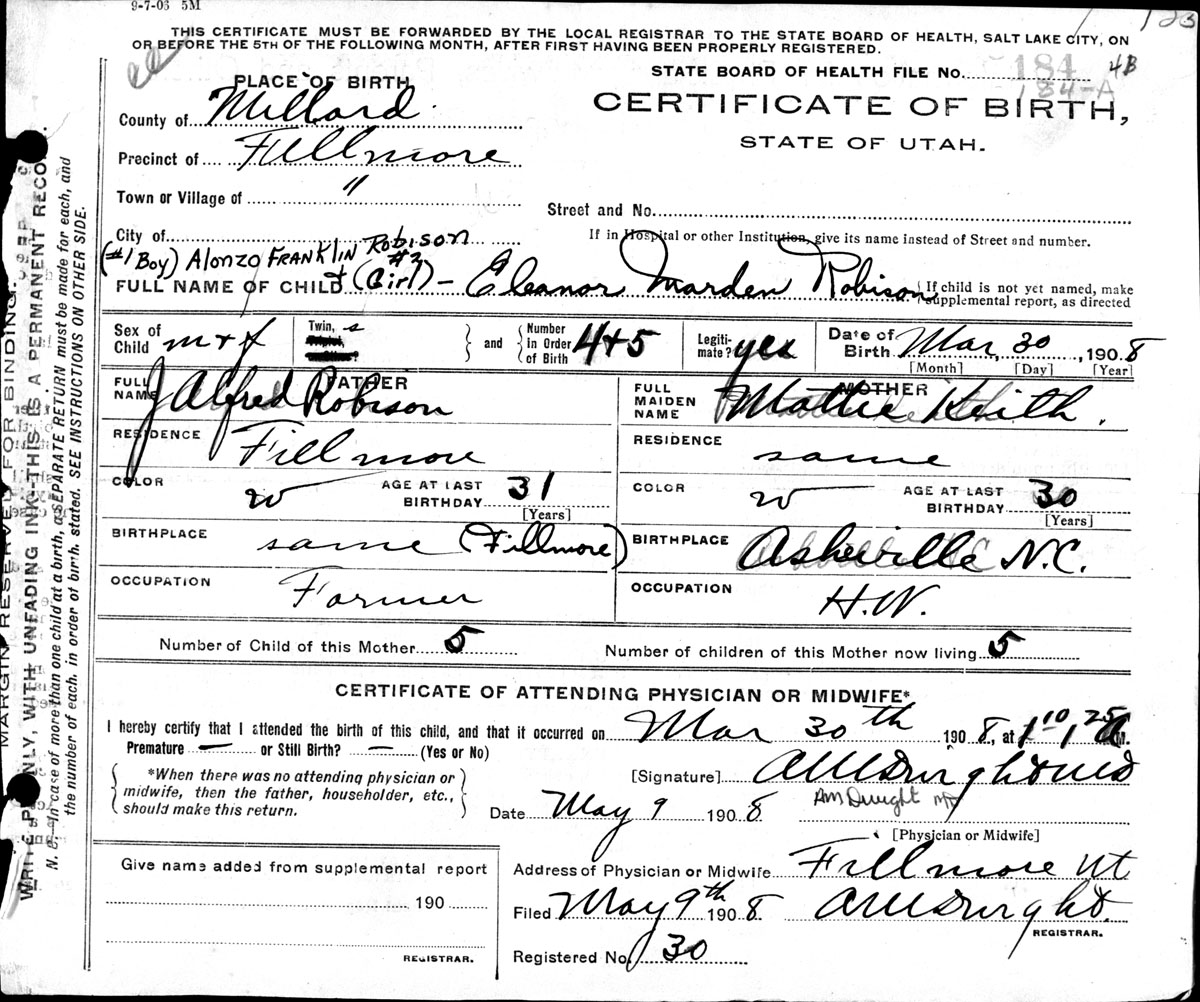 9-7-06 5M
THIS CERTIFICATE MUST BE FORWARDED BY THE LOCAL REGISTRAR TO THE STATE BOARD OF HEALTH, SALT LAKE CITY, ON
OR BEFORE THE 5TH OF THE FOLLOWING MONTH, AFTER FIRST HAVING BEEN PROPERLY REGISTERED.
STATE BOARD OF HEALTH FILE No. 184 4B
184-A
PLACE OF BIRTH
CERTIFICATE OF BIRTH,
STATE OF UTAH.
County of Millard
Precinct of Fillmore
Town or Village of "
Street and No.
City of
If in Hospital or other Institution, give its name instead of Street and number.
(#1 Boy) Alonzo FRANKLIN Robison
FULL NAME OF CHILD + (Girl) #2 - Eleanor Marden Robison
If child is not yet named, make
supplemental report, as directed
Sex of Child m + f Twin, s and Number In Order of Birth 4+5 Legiti-mate? yes Date of Birth Mar, 30, 1908
[Month] [Day] [Year]
FATHER MOTHER
FULL NAME J Alfred Robison FULL MAIDEN NAME Mattie Keith.
RESIDENCE Fillmore RESIDENCE same
COLOR w AGE AT LAST BIRTHDAY 31 [Years] COLOR w AGE AT LAST BIRTHDAY 30 [Years]
BIRTHPLACE same (Fillmore) BIRTHPLACE Asheville N.C.
OCCUPATION Farmer OCCUPATION H.W.
Number of Child of this Mother 5 Number of children of this Mother now living 5
CERTIFICATE OF ATTENDING PHYSICIAN OR MIDWIFE*
I hereby certify that I attended the birth of this child, and that it occurred on Mar 30th 1908, at 1 10, 1 25 A M.
Premature — or Still Birth? — (Yes or No)
*When there was no attending physician or
midwife, then the father, householder, etc.,
should make this return.
[Signature] A M Dwight MD
Date May 9 1908 AM Dwight MD
[Physician or Midwife]
Give name added from supplemental report
190
REGISTRAR.
Address of Physician or Midwife Fillmore Ut
Filed May 9th 1908 A M Dwight.
REGISTRAR.
Registered No. 30
MARGIN RESERVED FOR BINDING.
WRITE PLAINLY, WITH UNFADING INK—THIS IS A PERMANENT RECORD.
N. B.—In case of more than one child at a birth, a SEPARATE RETURN must be made for each, and
the number of each, in order of birth, stated. SEE INSTRUCTIONS ON OTHER SIDE.